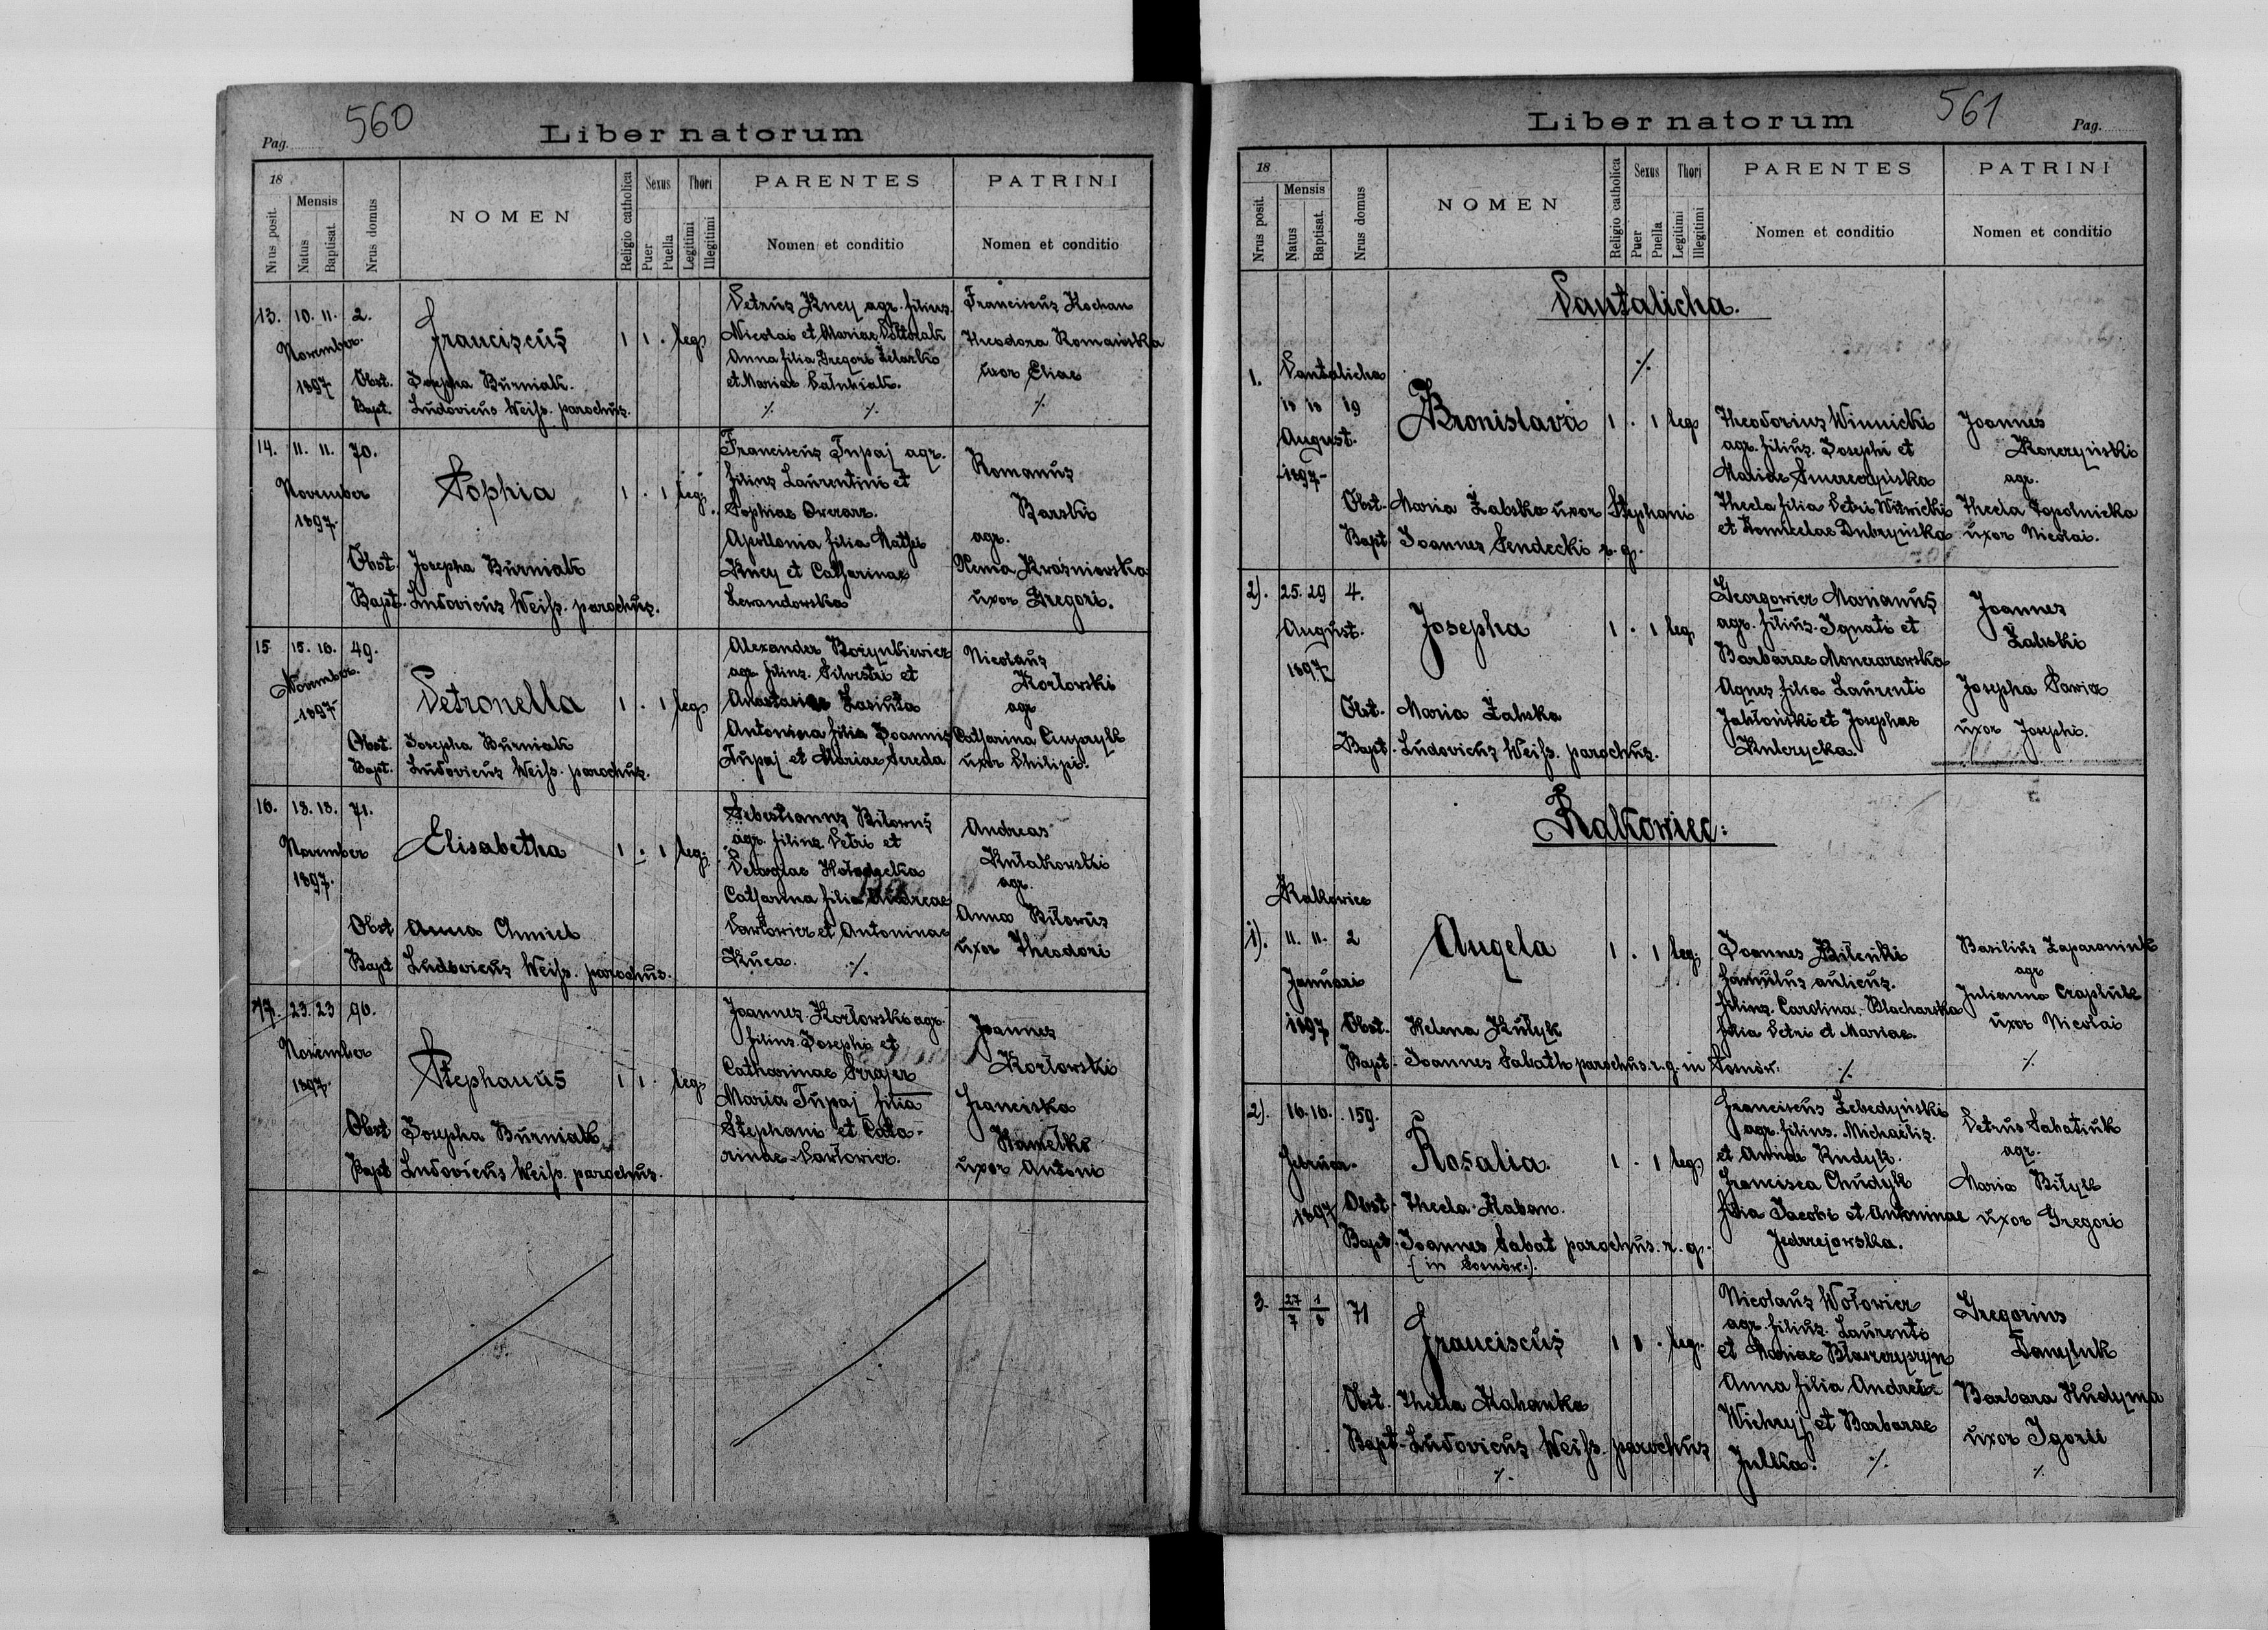 560
Liber natorum
Pag.
18
Nrus posit.
Mensis
Natus
Baptisat.
Nrus domus
NOMEN
Religio catholica
Sexus
Puer
Puella
Thori
Legitimi
Illegitimi
PARENTES
Nomen et conditio
PATRINI
Nomen et conditio
13. 10. 11. 2.
November
1897
Franciscus
1 1 . leg.
Obst. Josepha Burniak.
Bapt. Ludovicus Weiss. parochus.
Petrus Kney agr. filius
Nicolai et Mariae Półtorak
Anna filia Gregori Żelasko
et Mariae
Franciscus Kochan
Theodora Romańska
uxor Eliae
14. 11. 11. 70.
November
1897.
Sophia
1 . 1 leg.
Obst. Josepha Burniak
Bapt. Ludovicus Weiss. parochus.
Franciscus Tupaj agr.
filius Laurentini et
Sophiae Owerarz.
Apollonia filia Mathei
Kney et Catharinae
Lewandowska
Romanus
Barski
agr.
Xenia Kraśniowska
uxor Gregori.
15 15. 16. 49.
November.
1897
Petronella
1 . 1 leg.
Obst. Josepha Burniak
Bapt. Ludovicus Weiss. parochus.
Alexander
agr. filius. Silvestri et
Anastasiae Zasiuta
Antonina filia Joannis
Tupaj et Mariae Sereda
Nicolaus
Korłowski
agr
Catharina
uxor Philipi.
16. 18. 18. 71.
November
1897.
Elisabetha
1 . 1 leg.
Obst Anna Chmiel
Bapt Ludovicus Weiss. parochus.
Sebestianus Biłowus
agr. filius. Petri et
Pelagiae
Catharina filia Andreae
Pawłowicz et Antoninae
Kuca. ./.
Andreas
Kułakowski
agr.
Anna Biłowus
uxor Theodori
17. 23. 23 96.
November
1897.
Stephanus
1 1 . leg.
Obst Josepha Burniak
Bapt Ludovicus Weiss. parochus.
Joannes Korłowski agr.
filius Josephi et
Catharinae Srajer
Maria Tupaj filia
Stephani et Cata-
rinae Pawłowicz.
Joannes
Korłowski
Franciska
Hamełko
uxor Antoni
561
Liber natorum
Pag.
18
Nrus posit.
Mensis
Natus
Baptisat.
Nrus domus
NOMEN
Religio catholica
Sexus
Puer
Puella
Thori
Legitimi
Illegitimi
PARENTES
Nomen et conditio
PATRINI
Nomen et conditio
Pantalicha.
./.
1. Pantalicha
18 18 19
August.
1897
Bronislava
1 . 1 leg
Obst. Maria Żabska uxor Stephani
Bapt Joannes Sendecki r. g.
Theodorius Winnicki
agr. filius. Josephi et
Mariae
Thecla filia Petri Witwicki
et Domicelae Dubryńska
Joannes
Korczyński
agr.
Thecla Topolnicka
uxor Nicolai.
2). 25. 29 4.
August.
1897
Josepha
1 . 1 leg.
Obst. Maria Żabska
Bapt. Ludovicus Weiss. parochus.
Georgowicz Marianus
agr. filius. Ignati et
Barbarae Monczarowska
Agnes filia Laurenti
Jabłoński et Josephae
Kulczycka.
Joannes
Żabski
Josepha Pawicz
uxor Josephi.
Rakowiec:
Rakowiec
1). 11. 11. 2
Januari
1897
Angela
1 . 1 leg.
Obst. Helena Kułyk
Bapt. Joannes Sabath parochus. r. g. in Sosnów.
Joannes Bilenki
famulus aulicus.
filius. Carolina Blacharska
filia Petri et Mariae.
./.
Basilius Zaparaniuk
agr
Julianna Czapluk
uxor Nicolai
./.
2). 16. 16. 159.
Februar.
1897
Rosalia.
1 . 1 leg
Obst. Thecla Haban.
Bapt. Joannes Sabat parochus. r. g.
(in Sosnów.)
Franciscus Żebedyński
agr. filius. Michaelis.
et Annae Rudyk.
Francisca Chudyk
filia Jacobi et Antoninae
Jedrzejowska.
Petrus Sabatiuk
agr.
Maria Biłyk
uxor Gregori
3. 27/7 1/8 71
Franciscus
1 1 . leg.
Obst. Thecla Habanka
Bapt. Ludovicus Weiss. parochus
./.
Nicolaus Wołowicz
agr. filius. Laurenti
et Mariae
Anna filia Andreae
Wichry et Barbarae
Julka. ./.
Gregorius
Danyluk
Barbara Hudyma
uxor Igorii
./.